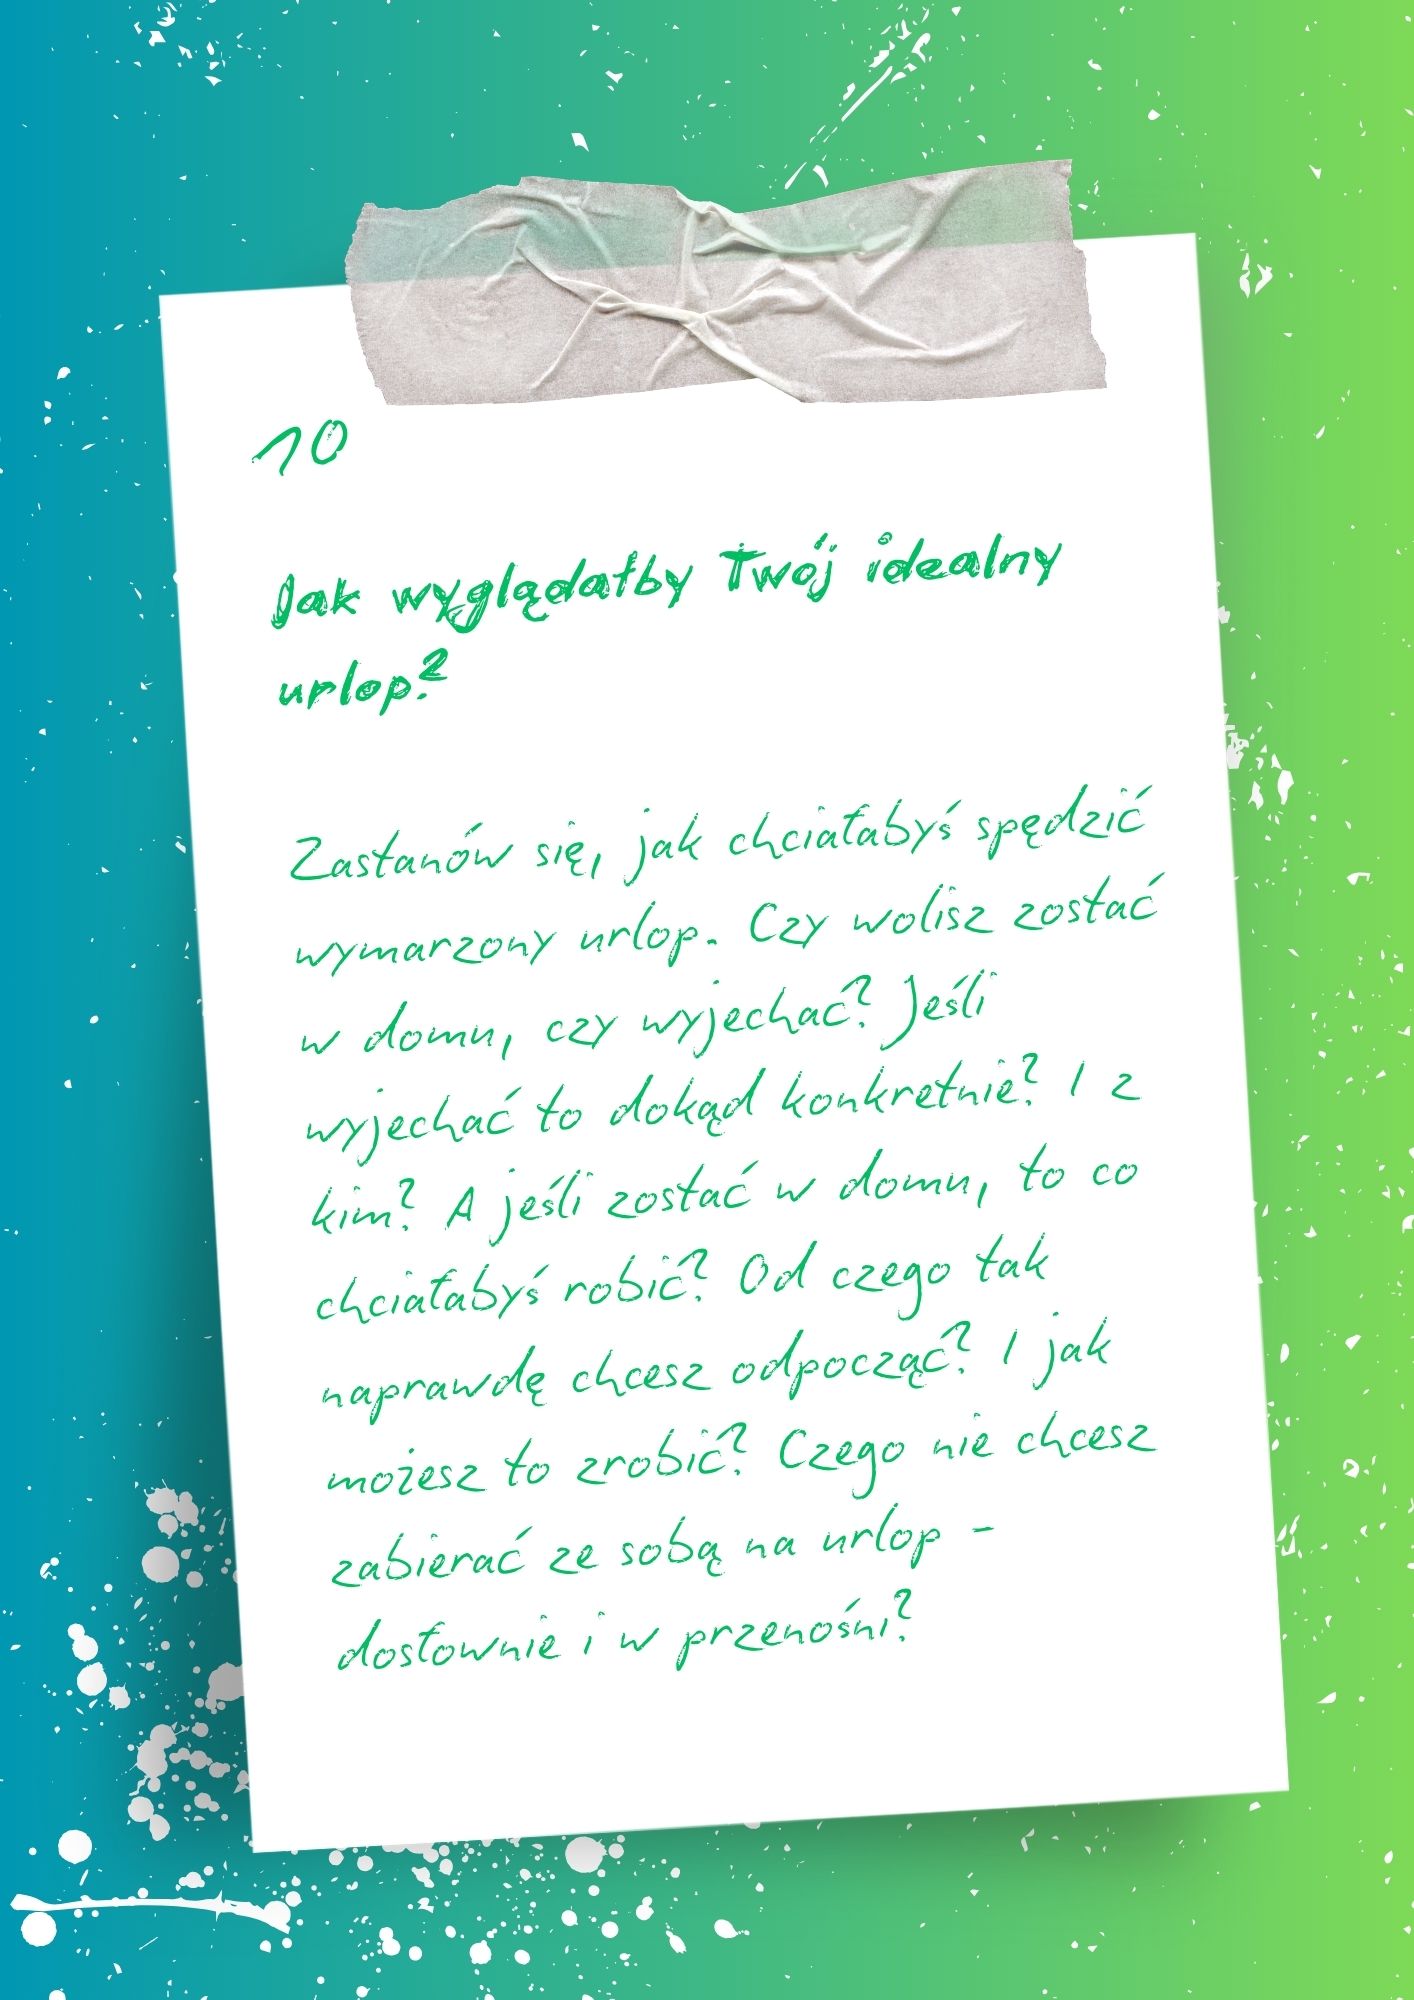 10
Jak wyglądałby Twój idealny
urlop?
Zastanów się, jak chciałabyś spędzić
wymarzony urlop. Czy wolisz zostać
w domu, czy wyjechać? Jeśli
wyjechać to dokąd konkretnie? I z
kim? A jeśli zostać w domu, to co
chciałabyś robić? Od czego tak
naprawdę chcesz odpocząć? I jak
możesz to zrobić? Czego nie chcesz
zabierać ze sobą na urlop -
dosłownie i w przenośni?